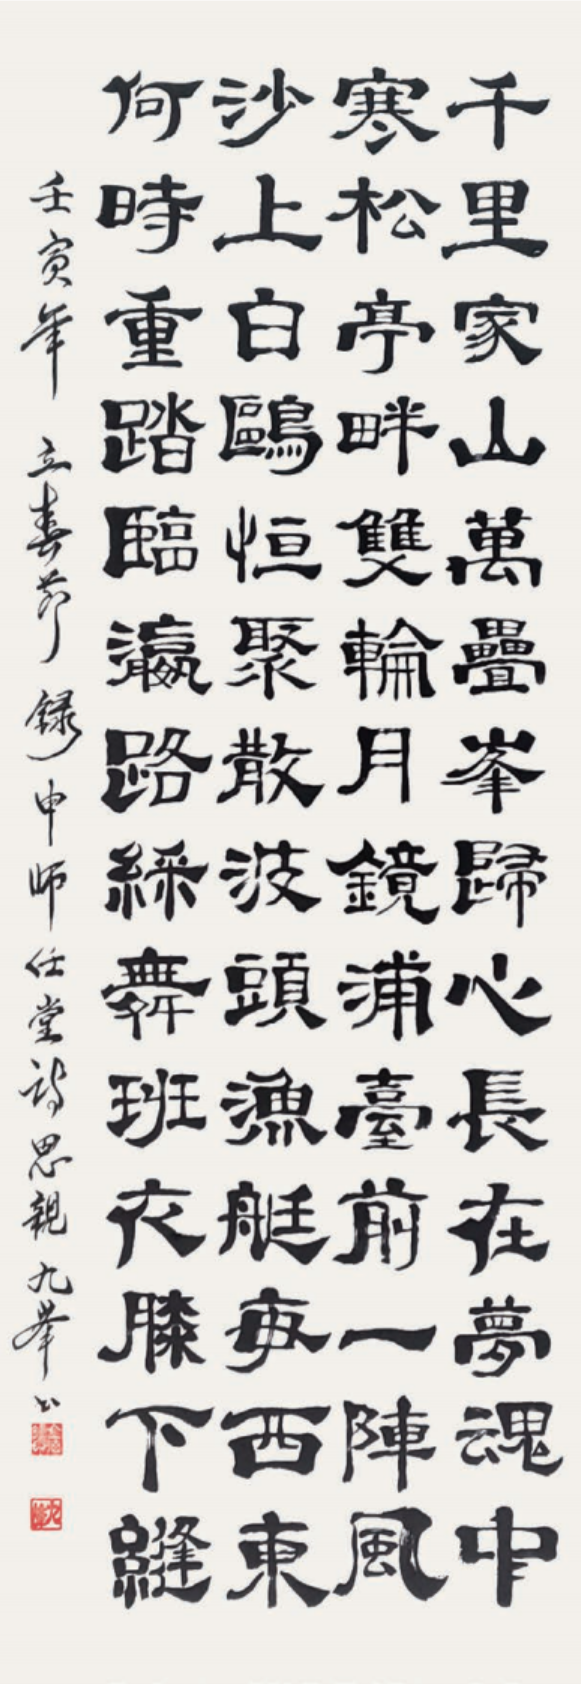 千里家山萬疊峯歸心長在夢魂中
寒松亭畔雙輪月鏡浦臺前一陣風
沙上白鷗恒聚散波頭漁艇每西東
何時重踏臨瀛路綵舞班衣膝下縫
壬寅年 立春節 録申師任堂詩思親 九峯書